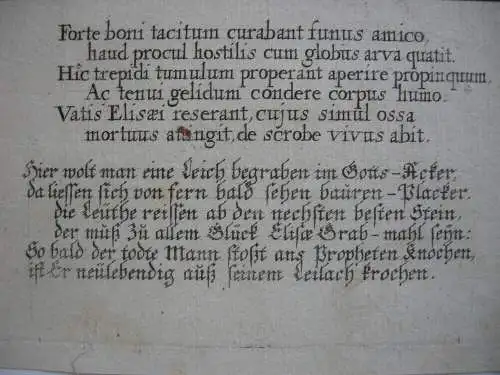 Forte boni tacitum curabant funus amico,
haud procul hostilis cum globus arva quatit.
Hic trepidi tumulum properant aperire propinquum
Ac tenui gelidum condere corpus humo.
Vatis Elisæi reserant, cujus simul ossa
mortuus attingit, de scrobe vivus abit.
Hier wolt man eine Leich begraben im Gotts-Acker,
da liessen sich von fern bald sehen bauren-Placker.
die Leüthe reissen ab den nechsten besten Stein,
der muß zu allem Glück Elisæ Grab-mahl seÿn:
So bald der todte Mann stoßt ans Propheten Knochen,
ist Er neülebendig auß seinem Leilach krochen.